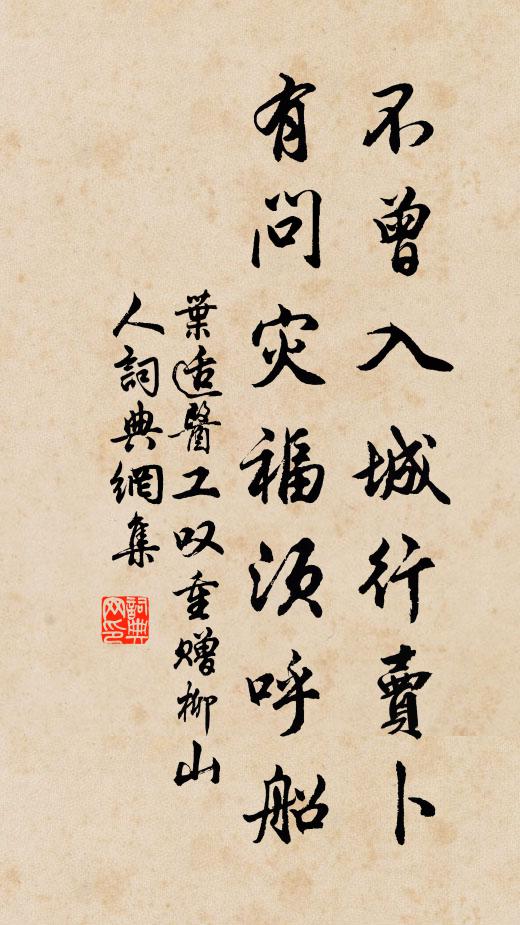 不曾入城行賣卜
有問灾福須呼船
葉适醫工叹重赠柳山
人詞典網集
詞典网印